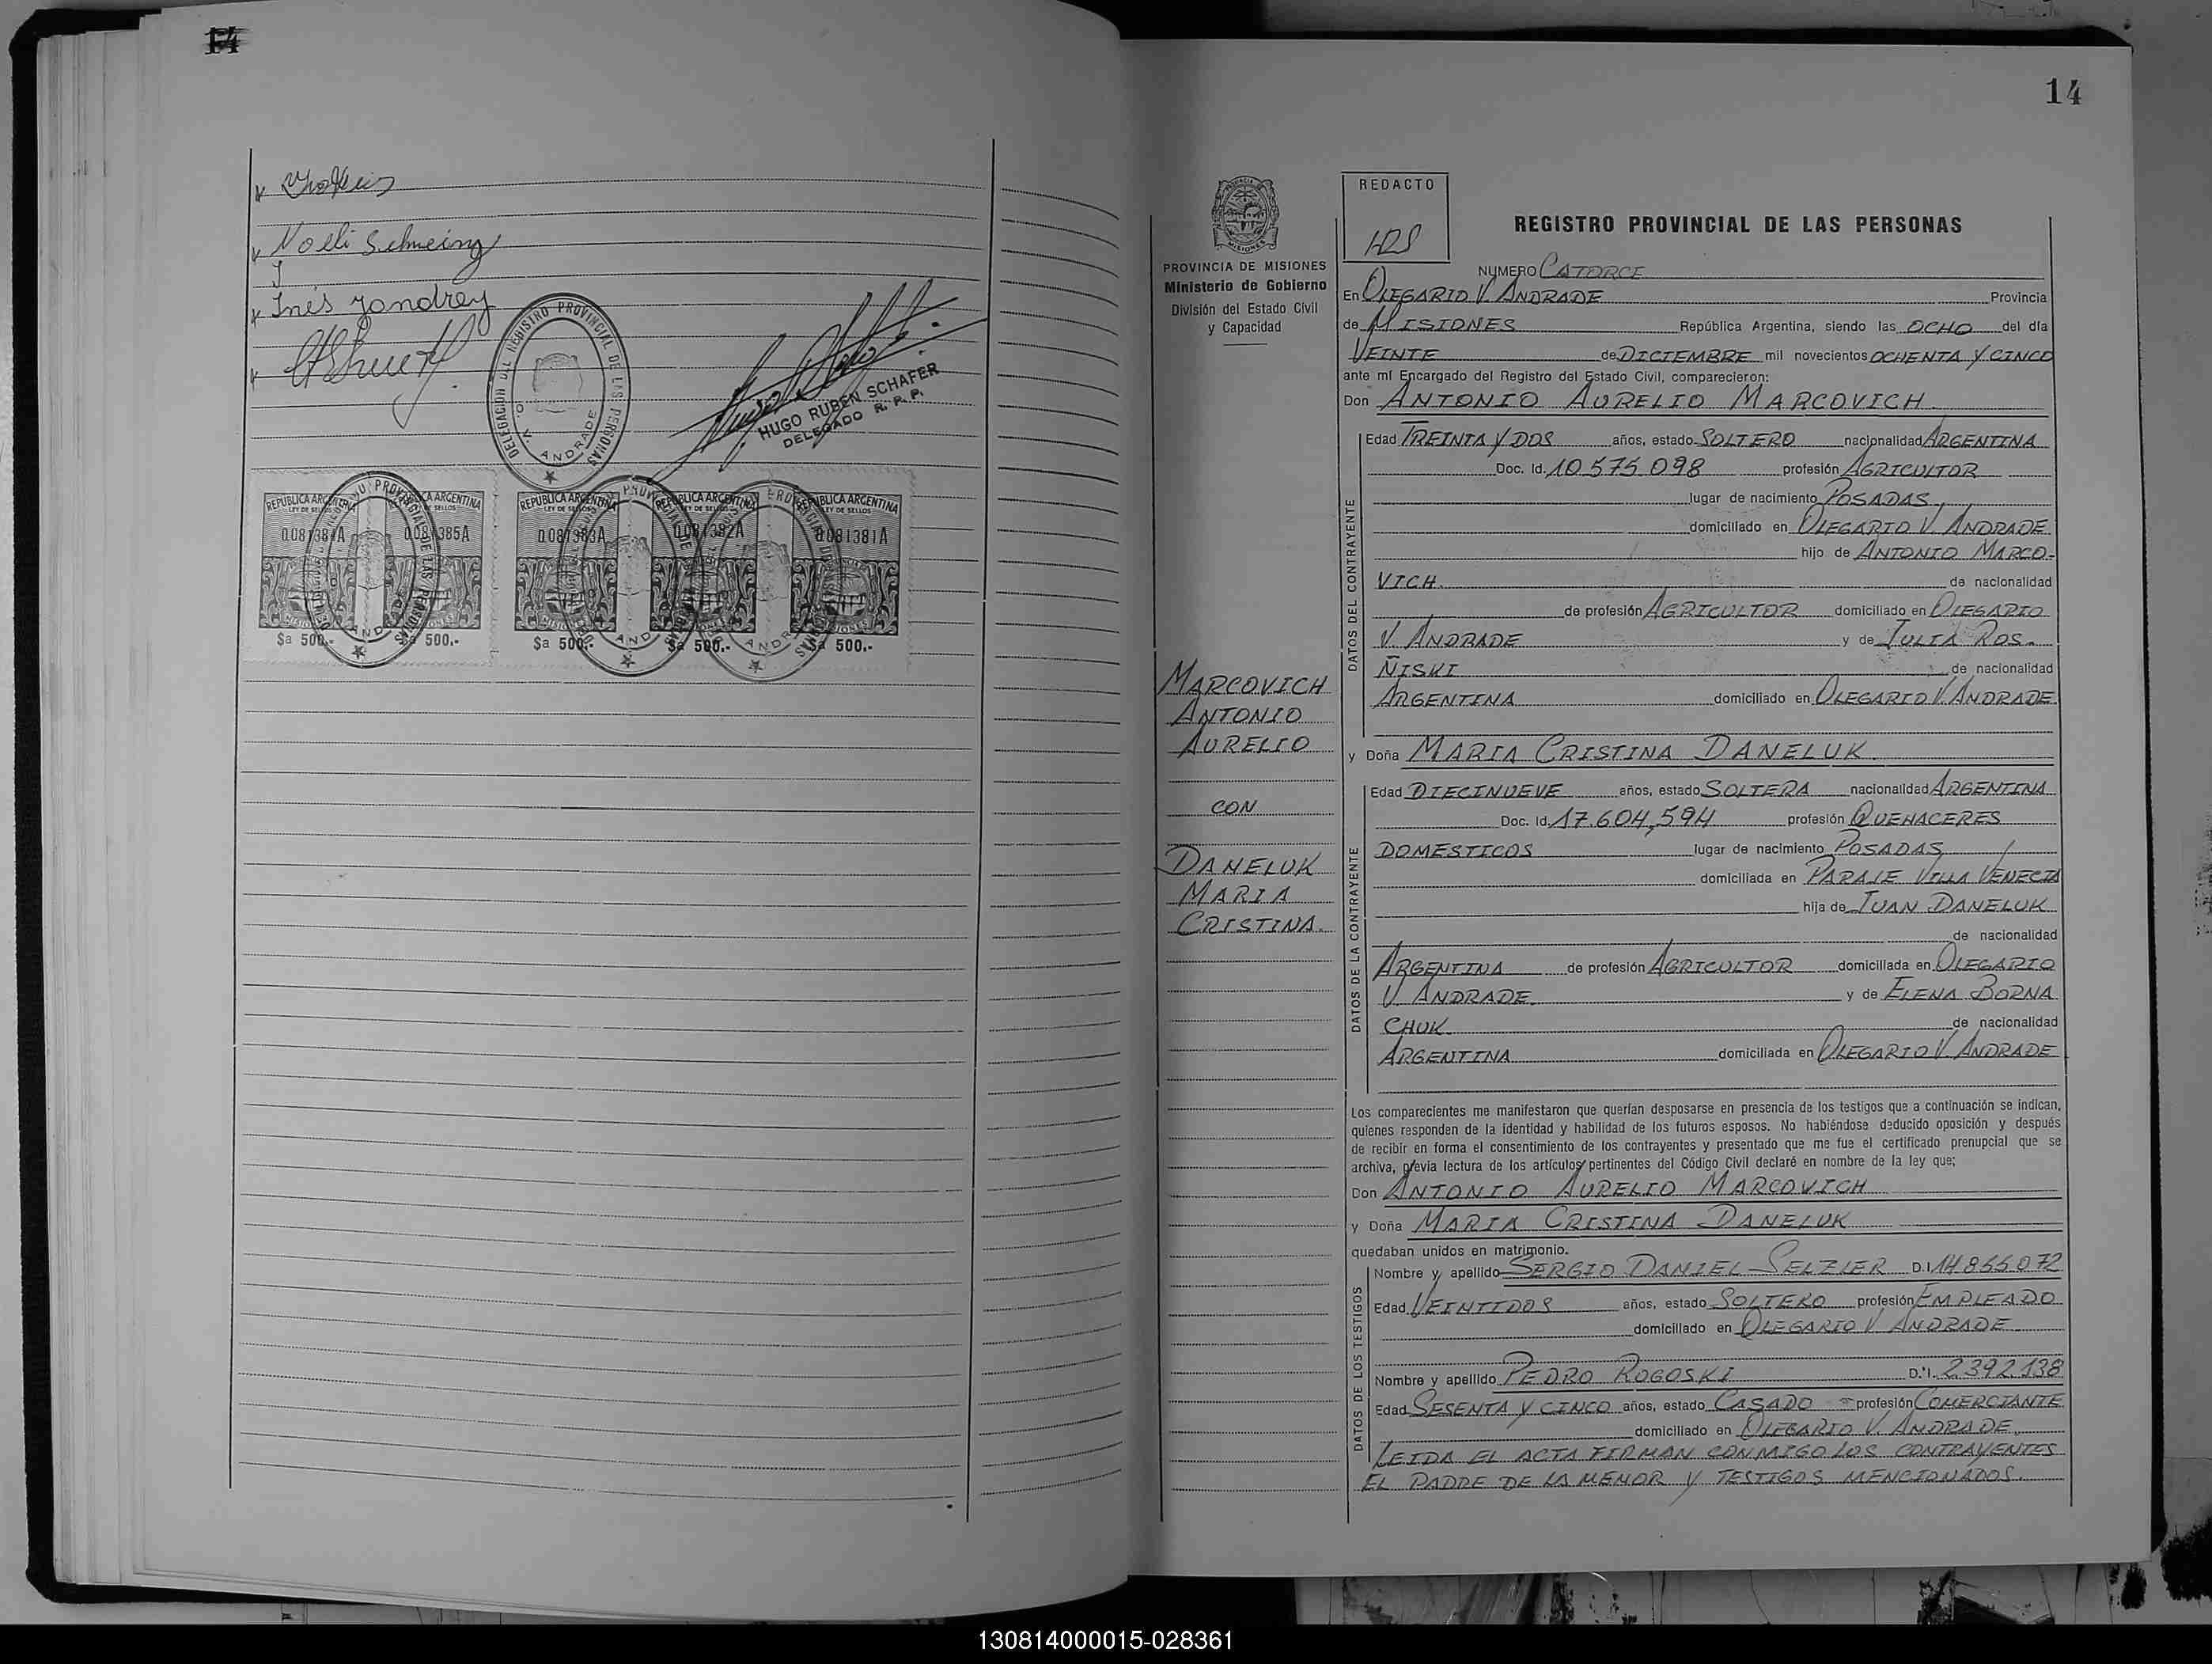 14
Noeli Schweing
Y
Inés Yandrey
DELEGACION DEL REGISTRO PROVINCIAL DE LAS PERSONAS
O. V. ANDRADE
HUGO RUBEN SCHAFER
DELEGADO R. P. P.
REPUBLICA ARGENTINA REPUBLICA ARGENTINA REPUBLICA ARGENTINA REPUBLICA ARGENTINA
LEY DE SELLOS LEY DE SELLOS LEY DE SELLOS LEY DE SELLOS
0081385A 0081383A 0081382A 0081381A
$a 500.- $a 500.- $a 500.- $a 500.- $a 500.-
14
PROVINCIA DE MISIONES
Ministerio de Gobierno
División del Estado Civil
y Capacidad
MARCOVICH
ANTONIO
AURELIO
CON
DANELUK
MARIA
CRISTINA.
REDACTO
HRS
REGISTRO PROVINCIAL DE LAS PERSONAS
NUMERO CATORCE
En OLEGARIO V. ANDRADE Provincia
de MISIONES República Argentina, siendo las OCHO del día
VEINTE de DICIEMBRE mil novecientos OCHENTA Y CINCO
ante mí Encargado del Registro del Estado Civil, comparecieron:
Don ANTONIO AURELIO MARCOVICH.
DATOS DEL CONTRAYENTE
Edad TREINTA Y DOS años, estado SOLTERO nacionalidad ARGENTINA
Doc. Id. 10.575.098 profesión AGRICULTOR
lugar de nacimiento POSADAS
domiciliado en OLEGARIO V. ANDRADE
hijo de ANTONIO MARCO-
VICH. de nacionalidad
de profesión AGRICULTOR domiciliado en OLEGARIO
V. ANDRADE y de JULIA ROS-
ÑISKI de nacionalidad
ARGENTINA domiciliado en OLEGARIO V. ANDRADE
y Doña MARIA CRISTINA DANELUK.
DATOS DE LA CONTRAYENTE
Edad DIECINUEVE años, estado SOLTERA nacionalidad ARGENTINA
Doc. Id. 17.604,594 profesión QUEHACERES
DOMESTICOS lugar de nacimiento POSADAS
domiciliada en PARAJE VILLA VENECIA
hija de JUAN DANELUK
de nacionalidad
ARGENTINA de profesión AGRICULTOR domiciliada en OLEGARIO
V ANDRADE y de ELENA BORNA
CHUK de nacionalidad
ARGENTINA domiciliada en OLEGARIO V. ANDRADE
Los comparecientes me manifestaron que querían desposarse en presencia de los testigos que a continuación se indican,
quienes responden de la identidad y habilidad de los futuros esposos. No habiéndose deducido oposición y después
de recibir en forma el consentimiento de los contrayentes y presentado que me fue el certificado prenupcial que se
archiva, previa lectura de los artículos pertinentes del Código Civil declaré en nombre de la ley que;
Don ANTONIO AURELIO MARCOVICH
y Doña MARIA CRISTINA DANELUK
quedaban unidos en matrimonio.
DATOS DE LOS TESTIGOS
Nombre y apellido SERGIO DANIEL SELZLER D.I. 14.855.072
Edad VEINTIDOS años, estado SOLTERO profesión EMPLEADO
domiciliado en OLEGARIO V ANDRADE
Nombre y apellido PEDRO ROGOSKI D.I. 2.392.138
Edad SESENTA Y CINCO años, estado CASADO profesión COMERCIANTE
domiciliado en OLEGARIO V. ANDRADE.
LEIDA EL ACTA FIRMAN CONMIGO LOS CONTRAYENTES
EL PADRE DE LA MENOR Y TESTIGOS MENCIONADOS.
130814000015-028361